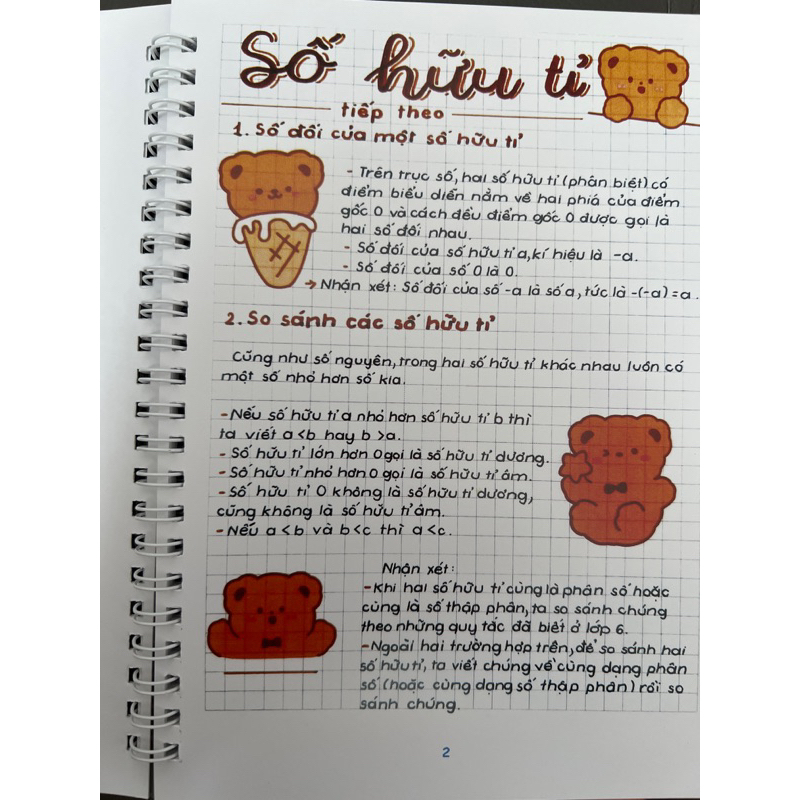 Số hữu tỉ
tiếp theo
1. Số đối của một số hữu tỉ
- Trên trục số, hai số hữu tỉ (phân biệt) có
điểm biểu diễn nằm về hai phiá của điểm
gốc 0 và cách đều điểm gốc 0 được gọi là
hai số đối nhau.
- Số đối của số hữu tỉ a, kí hiệu là -a.
- Số đối của số 0 là 0.
→ Nhận xét: Số đối của số -a là số a, tức là -(-a) = a.
2. So sánh các số hữu tỉ
Cũng như số nguyên, trong hai số hữu tỉ khác nhau luôn có
một số nhỏ hơn số kia.
- Nếu số hữu tỉ a nhỏ hơn số hữu tỉ b thì
ta viết a < b hay b > a.
- Số hữu tỉ lớn hơn 0 gọi là số hữu tỉ dương.
- Số hữu tỉ nhỏ hơn 0 gọi là số hữu tỉ âm.
- Số hữu tỉ 0 không là số hữu tỉ dương,
cũng không là số hữu tỉ âm.
- Nếu a < b và b < c thì a < c.
Nhận xét:
- Khi hai số hữu tỉ cùng là phân số hoặc
cùng là số thập phân, ta so sánh chúng
theo những quy tắc đã biết ở lớp 6.
- Ngoài hai trường hợp trên, để so sánh hai
số hữu tỉ, ta viết chúng về cùng dạng phân
số (hoặc cùng dạng số thập phân) rồi so
sánh chúng.
2